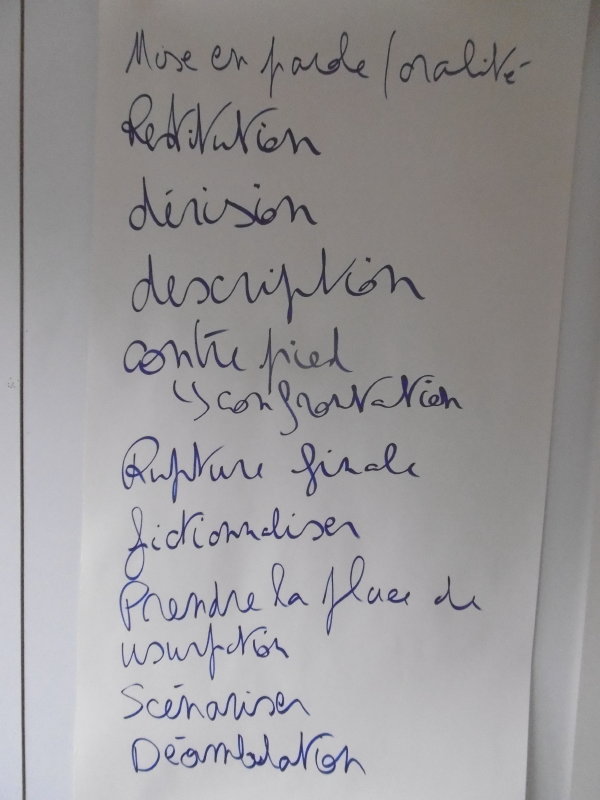 Mise en parole / oralité
Restitution
dérision
description
contre pied
↳ confrontation
Rupture finale
fictionnaliser
Prendre la place de
usurpation
Scénariser
Déambulation